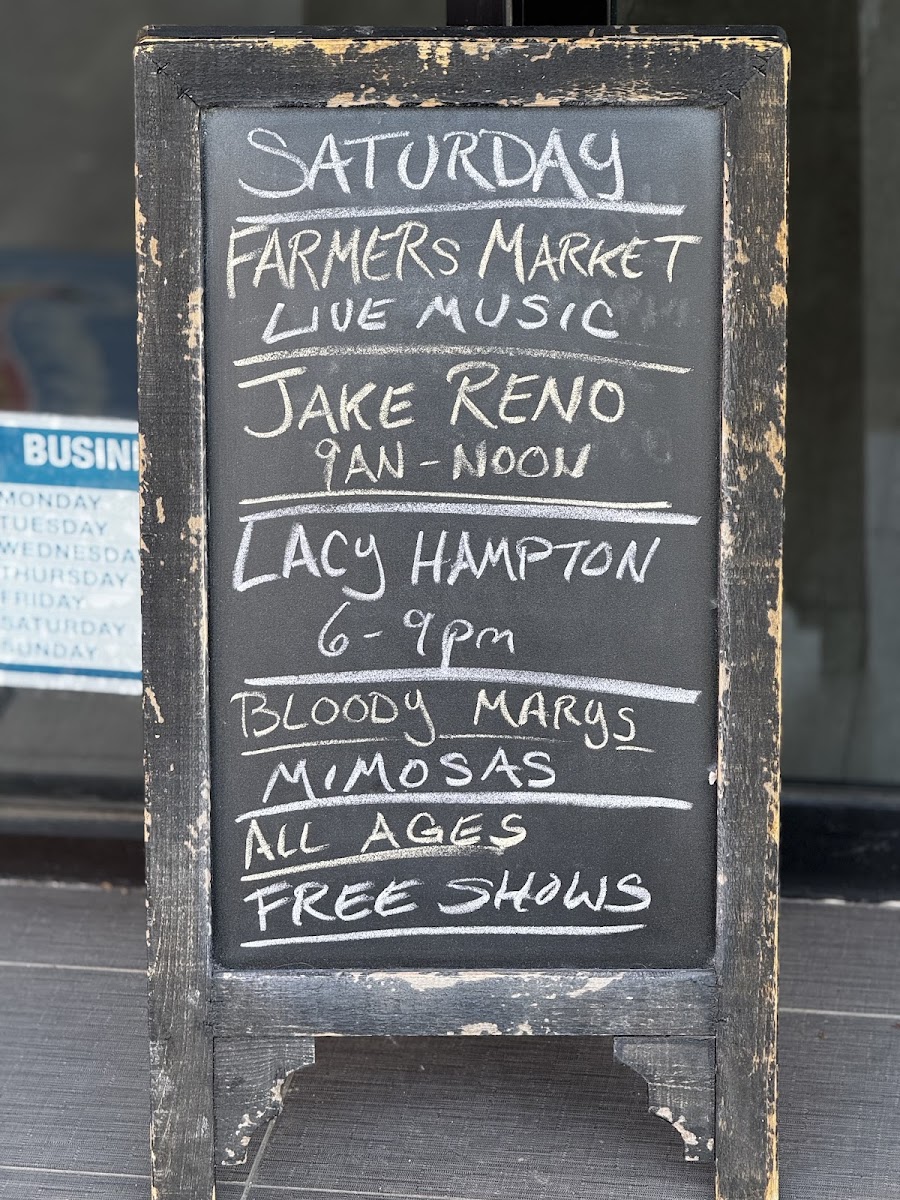 SATURDAY
FARMERS MARKET
LIVE MUSIC
JAKE RENO
9AN-NOON
LACY HAMPTON
6-9pm
BLOODY MARYS
MIMOSAS
ALL AGES
FREE SHOWS
BUSINE
MONDAY
TUESDAY
WEDNESDAY
THURSDAY
FRIDAY
SATURDAY
SUNDAY